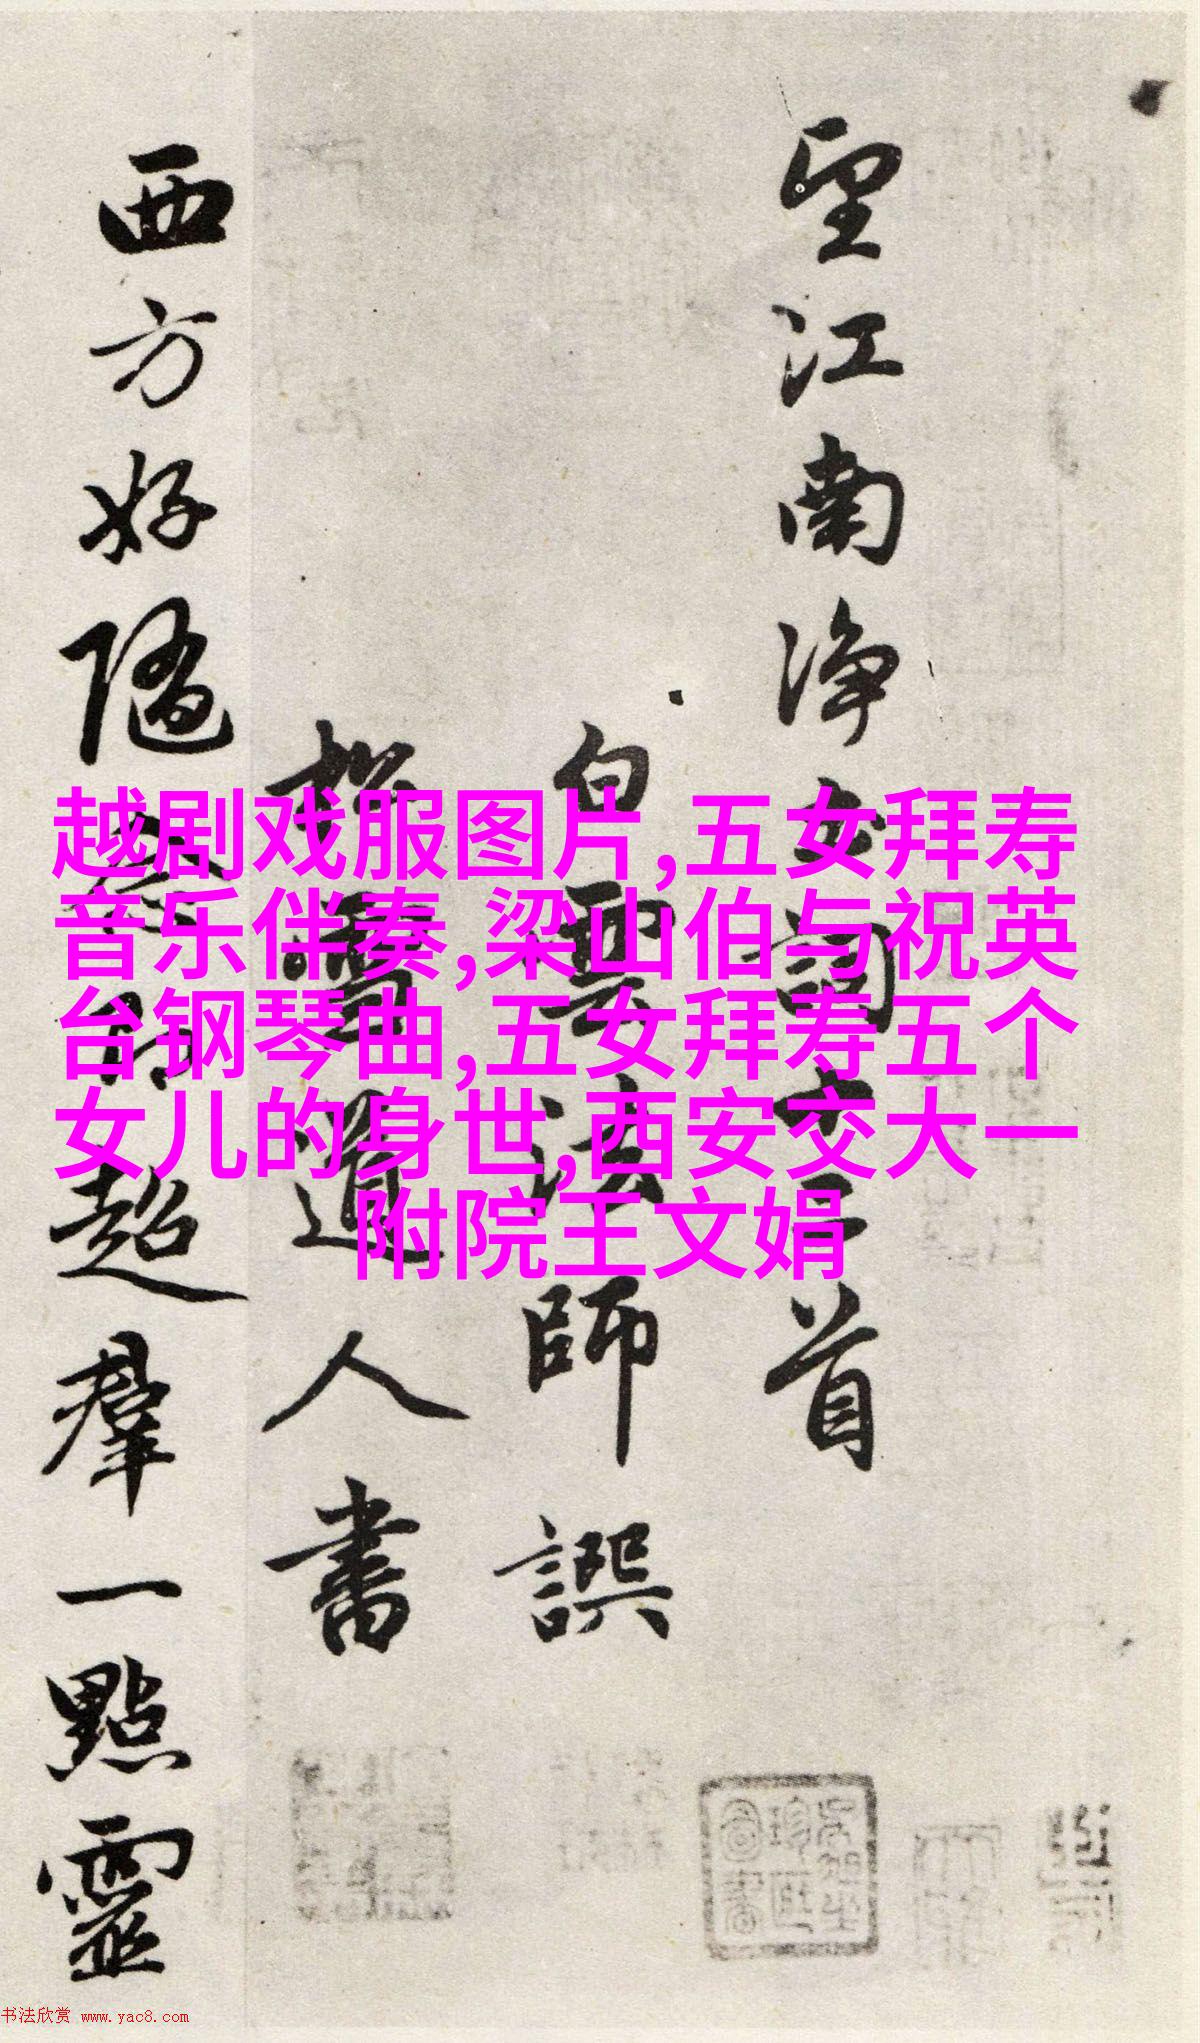 望江南淨土詞十二首
白雲法師譔
松雪道人書
西方好隨念即超羣一點靈
越剧戏服图片,五女拜寿
音乐伴奏,梁山伯与祝英
台钢琴曲,五女拜寿五个
女儿的身世,西安交大一
附院王文娟
书法欣赏 www.yac8.com